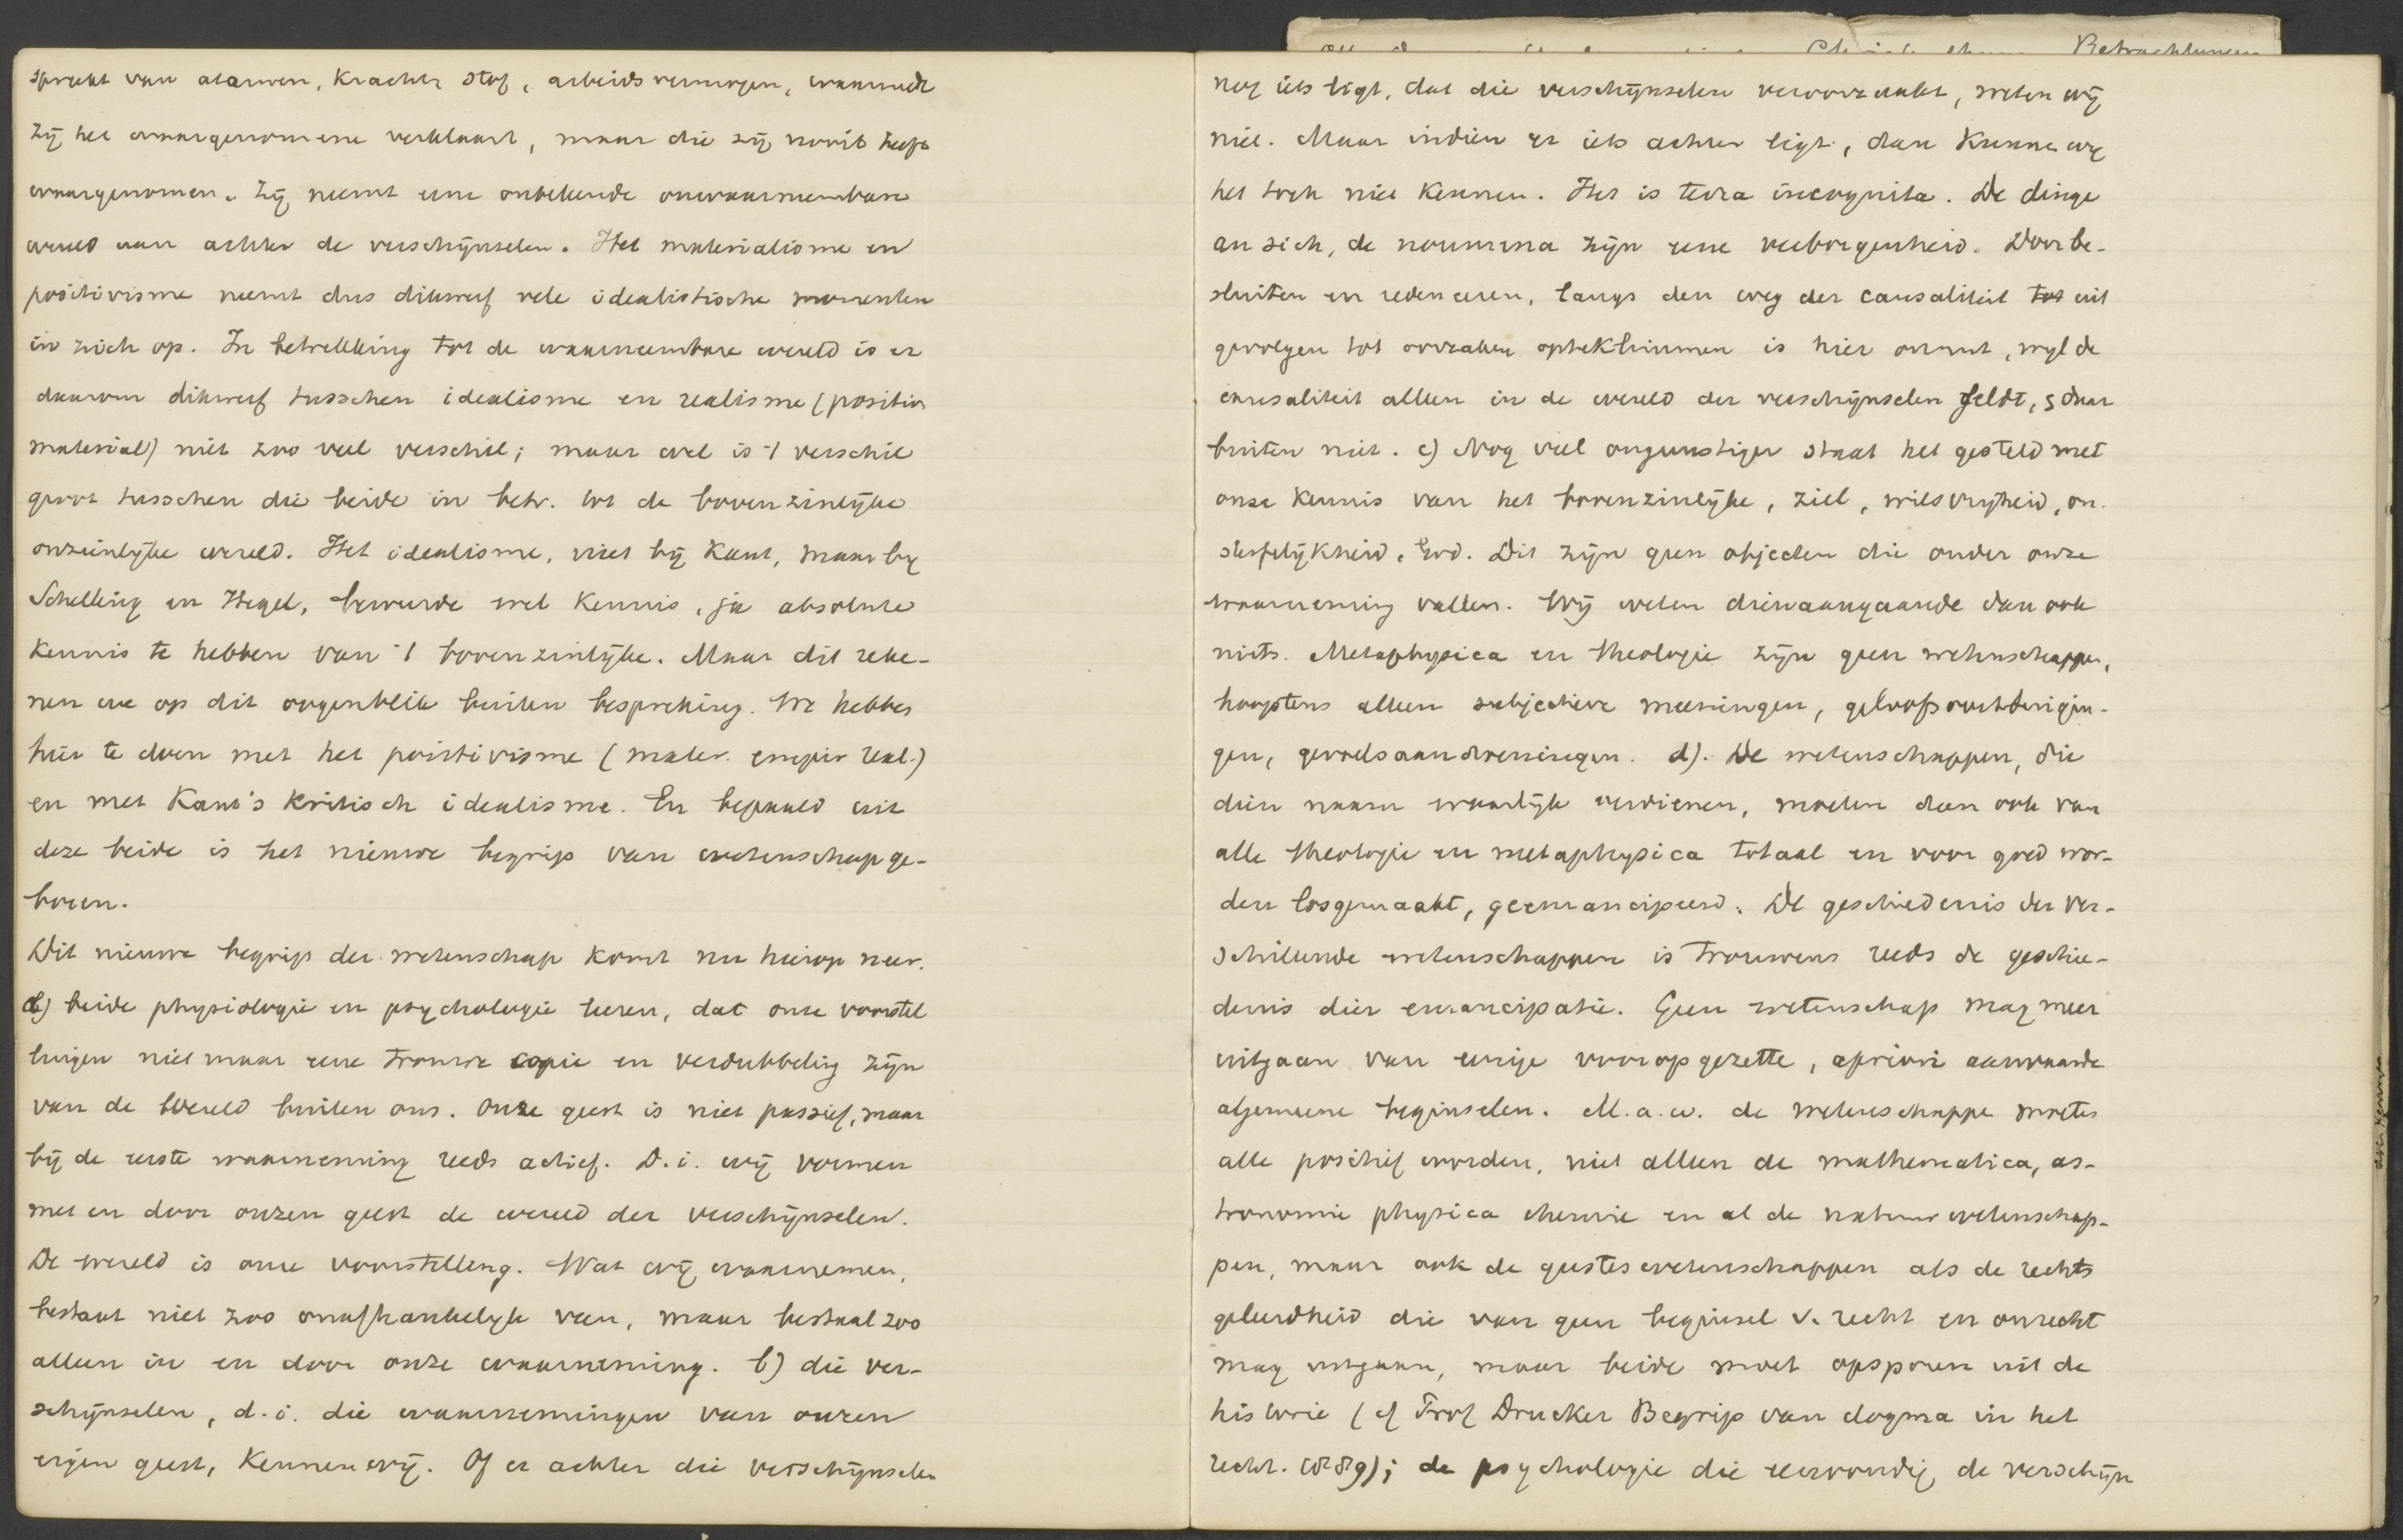 spreekt van atomen, kracht, stof, arbeidsvermogen, waarmede
zij het waargenomene verklaart, maar die zij nooit heeft
waargenomen. Zij neemt eene onbekende onwaarneembare
wereld aan achter de verschijnselen. Het materialisme en
positivisme neemt dus dikwerf vele idealistische momenten
in zich op. In betrekking tot de waarneembare wereld is er
daarom dikwerf tusschen idealisme en realisme (positiv
material) niet zoo veel verschil; maar wel is 't verschil
groot tusschen die beide in betr. tot de bovenzinlijke
onzienlijke wereld. Het idealisme, niet bij Kant, maar bij
Schelling en Hegel, beweerde wel kennis, ja absolute
kennis te hebben van 't bovenzinlijke. Maar dit reke-
nen we op dit oogenblik buiten bespreking. We hebben
hier te doen met het positivisme (mater. empir real.)
en met Kant's kritisch idealisme. En bepaald uit
deze beide is het nieuwe begrip van wetenschap ge-
boren.
Dit nieuwe begrip der wetenschap komt nu hierop neer.
a) beide physiologie en psychologie leeren, dat onze voorstel
lingen niet maar eene trouwe copie en verdubbeling zijn
van de wereld buiten ons. Onze geest is niet passief, maar
bij de eerste waarneming reeds actief. D.i. wij vormen
met en door onzen geest de wereld der verschijnselen.
De wereld is onze voorstelling. Wat wij waarnemen,
bestaat niet zoo onafhankelijk van, maar bestaat zoo
alleen in en door onze waarneming. b) die ver-
schijnselen, d.i. die waarnemingen van onzen
eigen geest, kennen wij. Of er achter die verschijnselen
nog iets ligt, dat die verschijnselen veroorzaakt, weten wij
niet. Maar indien er iets achter ligt, dan kunnen wij
het toch niet kennen. Het is terra incognita. De dinge
an sich, de noumena zijn eene verborgenheid. Door be-
sluiten en redeneren, langs den weg der causaliteit tot uit
gevolgen tot oorzaken opteklimmen is hier onnut, wijl de
causaliteit alleen in de wereld der verschijnselen geldt, daar
buiten niet. c) Nog veel ongunstiger staat het gesteld met
onze kennis van het bovenzinlijke, ziel, wilsvrijheid, on-
sterfelijkheid, God. Dit zijn geen objecten die onder onze
waarneming vallen. Wij weten dienaangaande dan ook
niets. Metaphysica en theologie zijn geen wetenschappen,
hoogstens alleen subjectieve meeningen, geloofsovertuigin-
gen, gevoelsaandoeningen. d). De wetenschappen, die
dien naam waarlijk verdienen, moeten dan ook van
alle theologie en metaphysica totaal en voor goed wor-
den losgemaakt, geëmancipeerd. De geschiedenis der ver-
schillende wetenschappen is trouwens reeds de geschie-
denis dier emancipatie. Geen wetenschap mag meer
uitgaan van eenige vooropgezette, apriori aanvaarde
algemeene beginselen. M.a.w. de wetenschappen moeten
alle positief worden, niet alleen de mathematica, as-
tronomie physica chemie en al de natuurwetenschap-
pen, maar ook de geesteswetenschappen als de rechts
geleerdheid die van geen beginsel v. recht en onrecht
mag uitgaan, maar beide moet opsporen uit de
historie (cf Prof Drucker Begrip van dogma in het
recht. (889); de psychologie die eenvoudig de verschijn